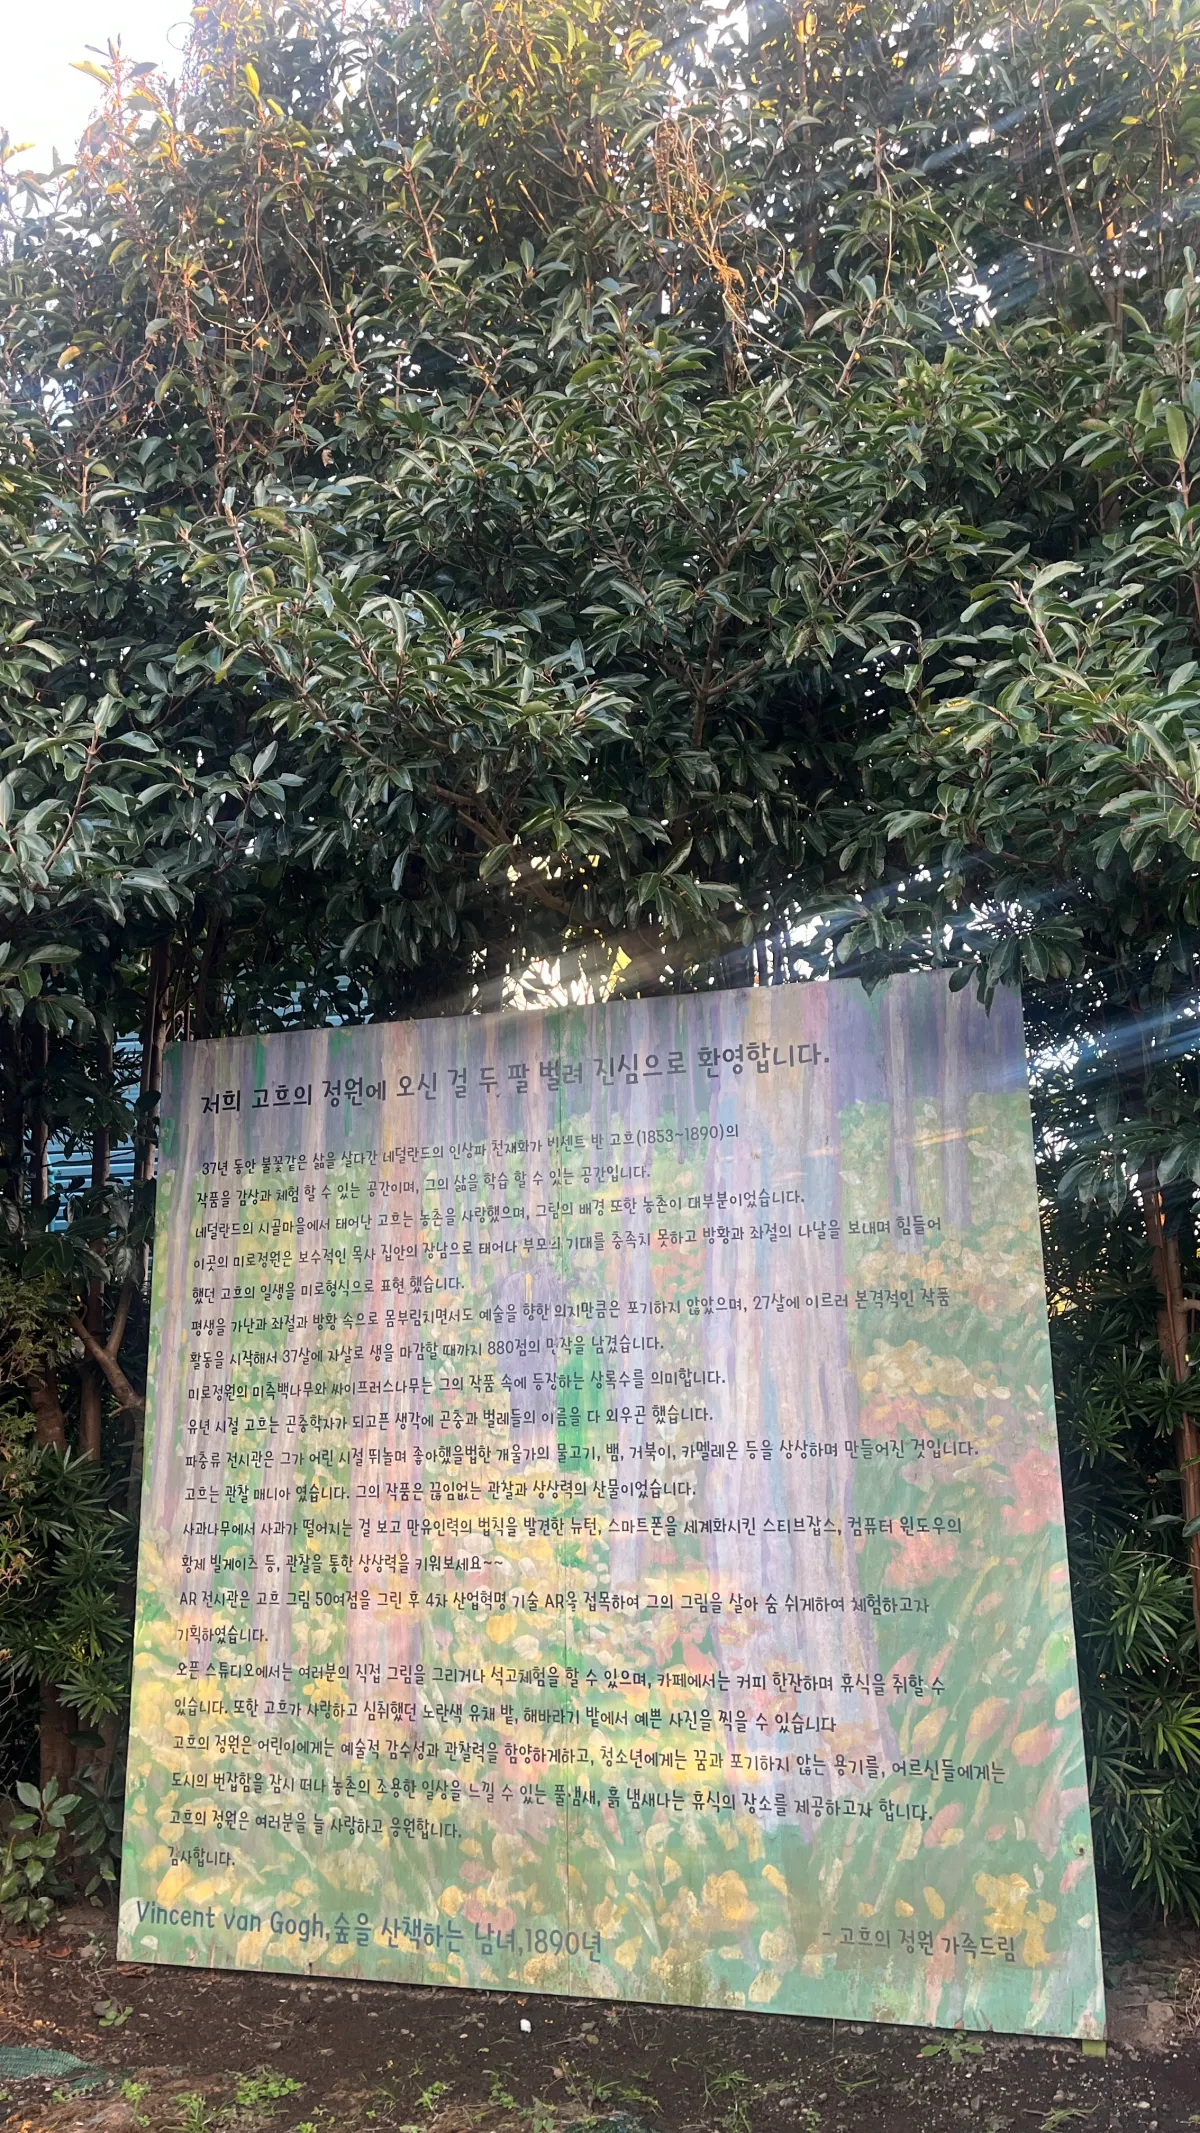 저희 고흐의 정원에 오신 걸 두 팔 벌려 진심으로 환영합니다.
37년 동안 불꽃같은 삶을 살다간 네덜란드의 인상파 천재화가 빈센트 반 고흐(1853~1890)의
작품을 감상과 체험 할 수 있는 공간이며, 그의 삶을 학습 할 수 있는 공간입니다.
네덜란드의 시골마을에서 태어난 고흐는 농촌을 사랑했으며, 그림의 배경 또한 농촌이 대부분이었습니다.
이곳의 미로정원은 보수적인 목사 집안의 장남으로 태어나 부모의 기대를 충족치 못하고 방황과 좌절의 나날을 보내며 힘들어
했던 고흐의 일생을 미로형식으로 표현 했습니다.
평생을 가난과 좌절과 방황 속으로 몸부림치면서도 예술을 향한 의지만큼은 포기하지 않았으며, 27살에 이르러 본격적인 작품
활동을 시작해서 37살에 자살로 생을 마감할 때까지 880점의 명작을 남겼습니다.
미로정원의 미측백나무와 싸이프러스나무는 그의 작품 속에 등장하는 상록수를 의미합니다.
유년 시절 고흐는 곤충학자가 되고픈 생각에 곤충과 벌레들의 이름을 다 외우곤 했습니다.
파충류 전시관은 그가 어린 시절 뛰놀며 좋아했을법한 개울가의 물고기, 뱀, 거북이, 카멜레온 등을 상상하며 만들어진 것입니다.
고흐는 관찰 매니아 였습니다. 그의 작품은 끊임없는 관찰과 상상력의 산물이었습니다.
사과나무에서 사과가 떨어지는 걸 보고 만유인력의 법칙을 발견한 뉴턴, 스마트폰을 세계화시킨 스티브잡스, 컴퓨터 윈도우의
황제 빌게이츠 등, 관찰을 통한 상상력을 키워보세요~~
AR 전시관은 고흐 그림 50여점을 그린 후 4차 산업혁명 기술 AR을 접목하여 그의 그림을 살아 숨 쉬게하여 체험하고자
기획하였습니다.
오픈 스튜디오에서는 여러분의 직접 그림을 그리거나 석고체험을 할 수 있으며, 카페에서는 커피 한잔하며 휴식을 취할 수
있습니다. 또한 고흐가 사랑하고 심취했던 노란색 유채 밭, 해바라기 밭에서 예쁜 사진을 찍을 수 있습니다
고흐의 정원은 어린이에게는 예술적 감수성과 관찰력을 함양하게하고, 청소년에게는 꿈과 포기하지 않는 용기를, 어르신들에게는
도시의 번잡함을 잠시 떠나 농촌의 조용한 일상을 느낄 수 있는 풀냄새, 흙 냄새나는 휴식의 장소를 제공하고자 합니다.
고흐의 정원은 여러분을 늘 사랑하고 응원합니다.
감사합니다.
Vincent van Gogh,숲을 산책하는 남녀,1890년
- 고흐의 정원 가족드림